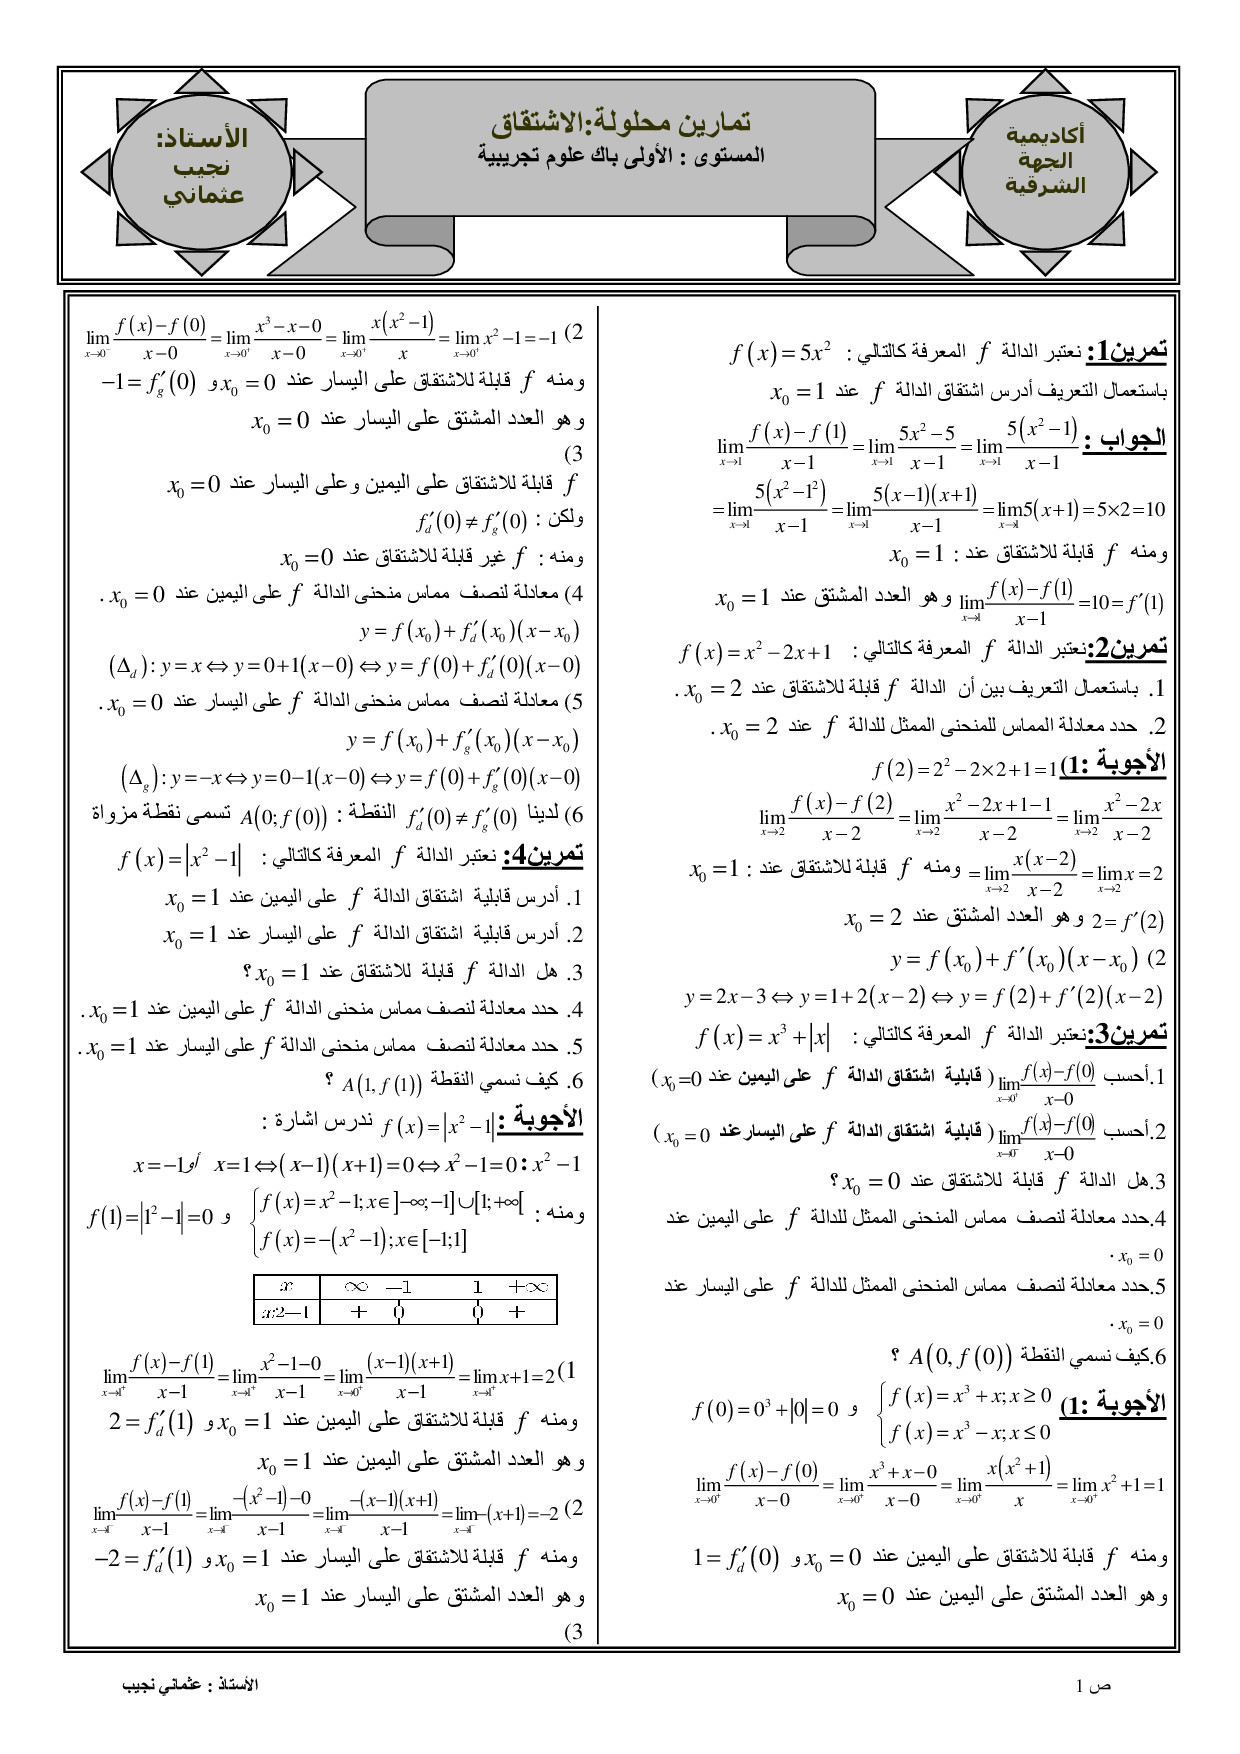 أكاديمية
الجهة
الشرقية
تمارين محلولة:الاشتقاق
المستوى : الأولى باك علوم تجريبية
الأستاذ:
نجيب
عثماني
تمرين1: نعتبر الدالة f المعرفة كالتالي : f(x)=5x²
باستعمال التعريف أدرس اشتقاق الدالة f عند x₀=1
الجواب : lim_{x→1} (f(x)−f(1))/(x−1) = lim_{x→1} (5x²−5)/(x−1) = lim_{x→1} 5(x²−1)/(x−1)
= lim_{x→1} 5(x²−1²)/(x−1) = lim_{x→1} 5(x−1)(x+1)/(x−1) = lim_{x→1} 5(x+1) = 5×2 = 10
ومنه f قابلة للاشتقاق عند : x₀=1
lim_{x→1} (f(x)−f(1))/(x−1) = 10 = f′(1) وهو العدد المشتق عند x₀=1
تمرين2: نعتبر الدالة f المعرفة كالتالي : f(x)=x²−2x+1
1. باستعمال التعريف بين أن الدالة f قابلة للاشتقاق عند x₀=2 .
2. حدد معادلة المماس للمنحنى الممثل للدالة f عند x₀=2 .
الأجوبة :1) f(2)=2²−2×2+1=1
lim_{x→2} (f(x)−f(2))/(x−2) = lim_{x→2} (x²−2x+1−1)/(x−2) = lim_{x→2} (x²−2x)/(x−2)
= lim_{x→2} x(x−2)/(x−2) = lim_{x→2} x = 2 ومنه f قابلة للاشتقاق عند : x₀=1
2=f′(2) وهو العدد المشتق عند x₀=2
2) y=f(x₀)+f′(x₀)(x−x₀)
y=2x−3⇔y=1+2(x−2)⇔y=f(2)+f′(2)(x−2)
تمرين3: نعتبر الدالة f المعرفة كالتالي : f(x)=x³+|x|
1.أحسب lim_{x→0⁺} (f(x)−f(0))/(x−0) ( قابلية اشتقاق الدالة f على اليمين عند x₀=0 )
2.أحسب lim_{x→0⁻} (f(x)−f(0))/(x−0) ( قابلية اشتقاق الدالة f على اليسارعند x₀=0 )
3.هل الدالة f قابلة للاشتقاق عند x₀=0 ؟
4.حدد معادلة لنصف مماس المنحنى الممثل للدالة f على اليمين عند
x₀=0 .
5.حدد معادلة لنصف مماس المنحنى الممثل للدالة f على اليسار عند
x₀=0 .
6.كيف نسمي النقطة A(0,f(0)) ؟
الأجوبة :1) { f(x)=x³+x;x≥0 و f(0)=0³+|0|=0
f(x)=x³−x;x≤0
lim_{x→0⁺} (f(x)−f(0))/(x−0) = lim_{x→0⁺} (x³+x−0)/(x−0) = lim_{x→0⁺} x(x²+1)/x = lim_{x→0⁺} x²+1=1
ومنه f قابلة للاشتقاق على اليمين عند x₀=0 و 1=f′_d(0)
وهو العدد المشتق على اليمين عند x₀=0
2) lim_{x→0⁻} (f(x)−f(0))/(x−0) = lim_{x→0⁺} (x³−x−0)/(x−0) = lim_{x→0⁺} x(x²−1)/x = lim_{x→0⁺} x²−1=−1
ومنه f قابلة للاشتقاق على اليسار عند x₀=0 و −1=f′_g(0)
وهو العدد المشتق على اليسار عند x₀=0
3)
f قابلة للاشتقاق على اليمين وعلى اليسار عند x₀=0
ولكن : f′_d(0)≠f′_g(0)
ومنه : f غير قابلة للاشتقاق عند x₀=0
4) معادلة لنصف مماس منحنى الدالة f على اليمين عند x₀=0 .
y=f(x₀)+f′_d(x₀)(x−x₀)
(Δ_d):y=x⇔y=0+1(x−0)⇔y=f(0)+f′_d(0)(x−0)
5) معادلة لنصف مماس منحنى الدالة f على اليسار عند x₀=0 .
y=f(x₀)+f′_g(x₀)(x−x₀)
(Δ_g):y=−x⇔y=0−1(x−0)⇔y=f(0)+f′_g(0)(x−0)
6) لدينا f′_d(0)≠f′_g(0) النقطة : A(0;f(0)) تسمى نقطة مزواة
تمرين4: نعتبر الدالة f المعرفة كالتالي : f(x)=|x²−1|
1. أدرس قابلية اشتقاق الدالة f على اليمين عند x₀=1
2. أدرس قابلية اشتقاق الدالة f على اليسار عند x₀=1
3. هل الدالة f قابلة للاشتقاق عند x₀=1 ؟
4. حدد معادلة لنصف مماس منحنى الدالة f على اليمين عند x₀=1 .
5. حدد معادلة لنصف مماس منحنى الدالة f على اليسار عند x₀=1 .
6. كيف نسمي النقطة A(1,f(1)) ؟
الأجوبة : f(x)=|x²−1| ندرس اشارة :
x²−1 : x²−1=0⇔(x−1)(x+1)=0⇔x=1 أو x=−1
ومنه : { f(x)=x²−1;x∈]−∞;−1]∪[1;+∞[ و f(1)=|1²−1|=0
f(x)=−(x²−1);x∈[−1;1]
x ∞ −1 1 +∞
x2−1 + 0 0 +
1) lim_{x→1⁺} (f(x)−f(1))/(x−1) = lim_{x→1⁺} (x²−1−0)/(x−1) = lim_{x→0⁺} (x−1)(x+1)/(x−1) = lim_{x→1⁺} x+1=2
ومنه f قابلة للاشتقاق على اليمين عند x₀=1 و 2=f′_d(1)
وهو العدد المشتق على اليمين عند x₀=1
2) lim_{x→1⁻} (f(x)−f(1))/(x−1) = lim_{x→1⁻} (−(x²−1)−0)/(x−1) = lim_{x→1⁻} −(x−1)(x+1)/(x−1) = lim_{x→1⁻} −(x+1)=−2
ومنه f قابلة للاشتقاق على اليسار عند x₀=1 و −2=f′_d(1)
وهو العدد المشتق على اليسار عند x₀=1
3)
ص 1
الأستاذ : عثماني نجيب